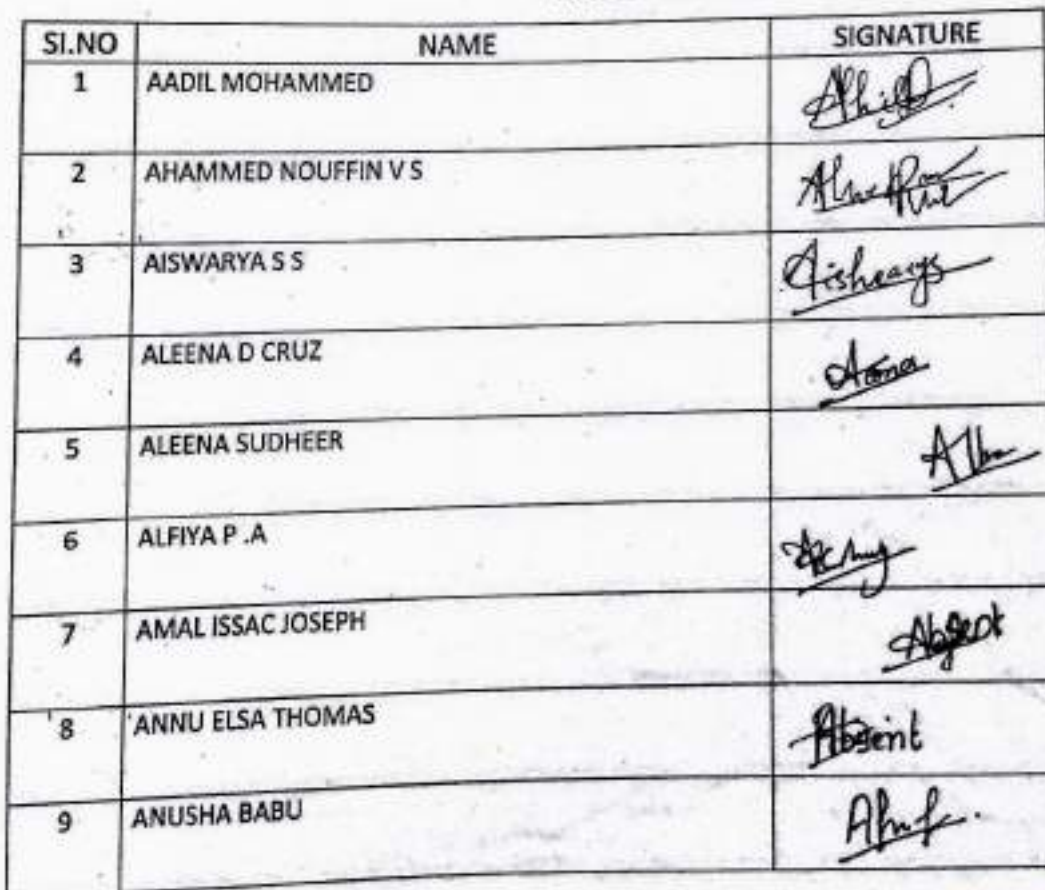 SI.NO NAME SIGNATURE
1 AADIL MOHAMMED
2 AHAMMED NOUFFIN V S
3 AISWARYA S S
4 ALEENA D CRUZ
5 ALEENA SUDHEER
6 ALFIYA P .A
7 AMAL ISSAC JOSEPH Absent
8 ANNU ELSA THOMAS Absent
9 ANUSHA BABU